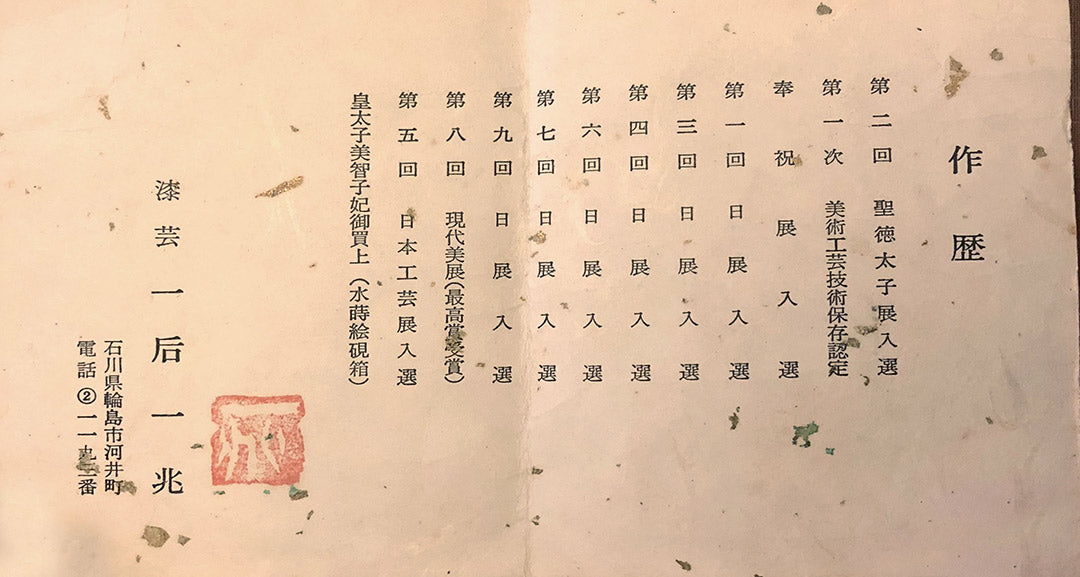 作歴
第二回 聖徳太子展入選
第一次 美術工芸技術保存認定
奉祝展入選
第一回日展入選
第三回日展入選
第四回日展入選
第六回日展入選
第七回日展入選
第九回日展入選
第八回 現代美展(最高賞受賞)
第五回 日本工芸展入選
皇太子美智子妃御買上(水蒔絵硯箱)
漆芸 一后一兆
石川県輪島市河井町
電話②一一九二番